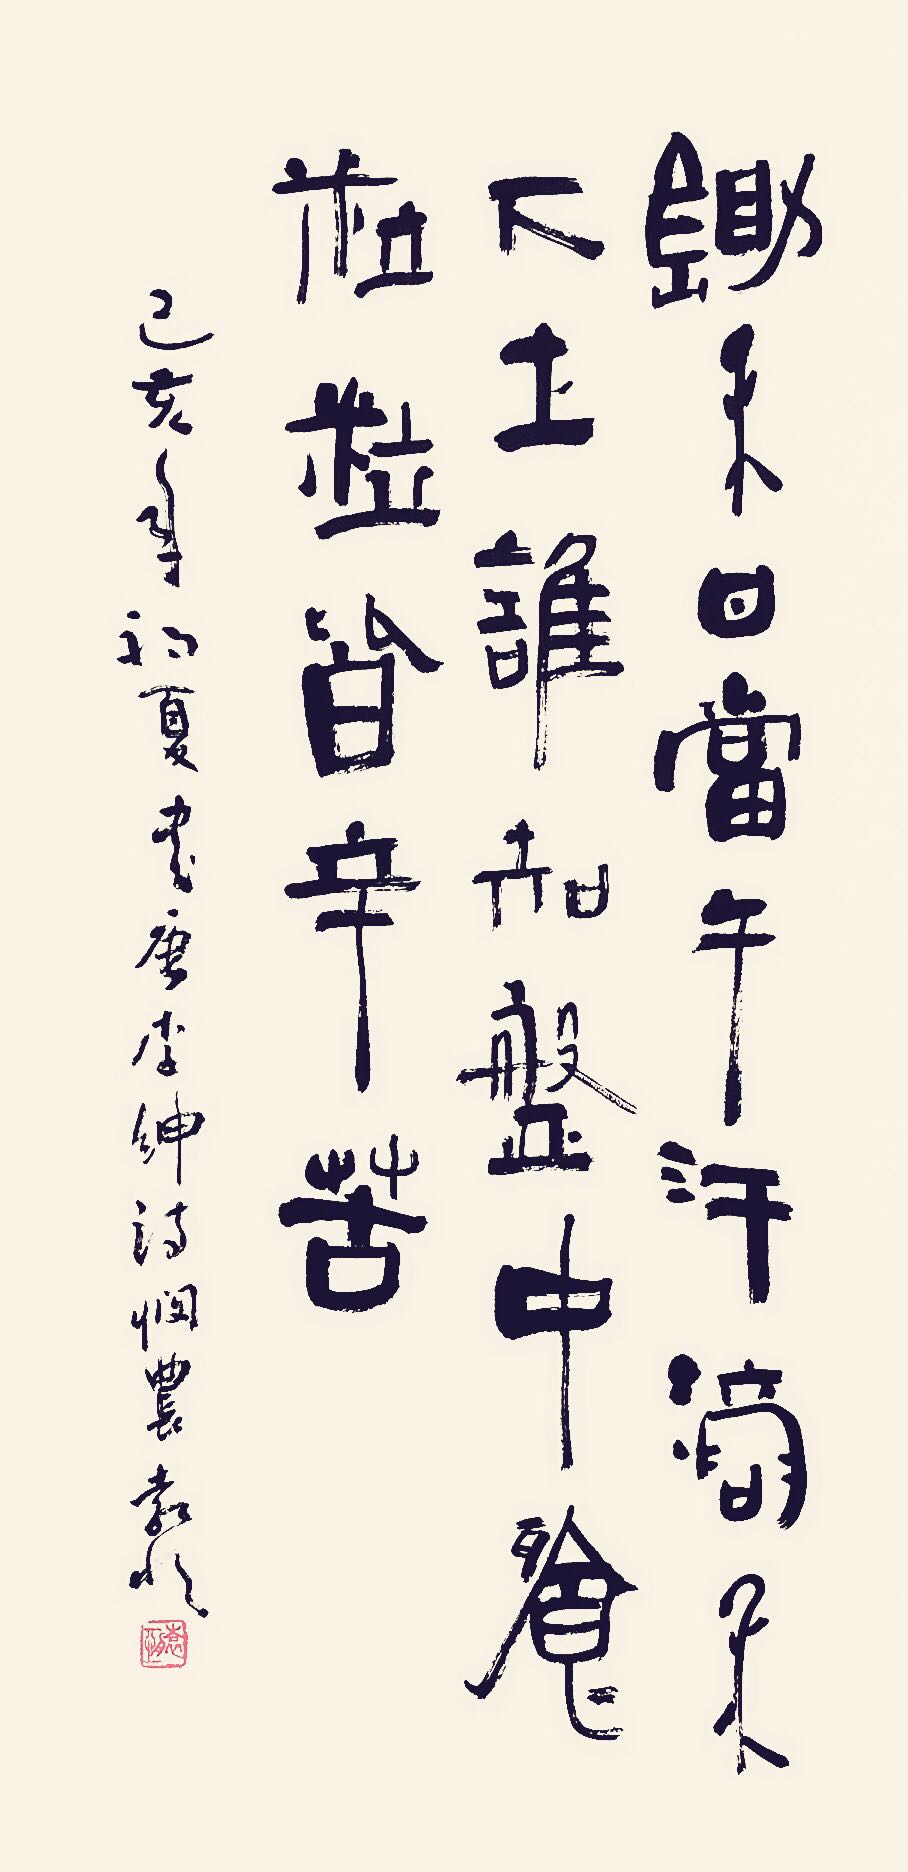 鋤禾日當午汗滴禾
下土誰知盤中餐
粒粒皆辛苦
己亥年初夏書唐李紳詩憫農袁